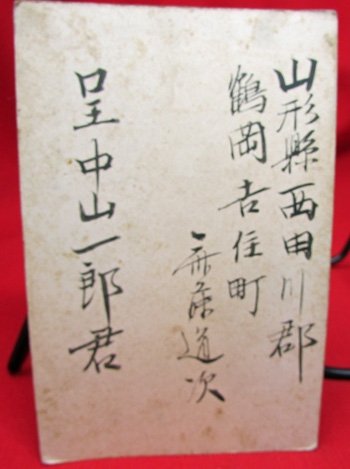 山形縣西田川郡
鶴岡吉住町
藤道次
呈中山一郎君